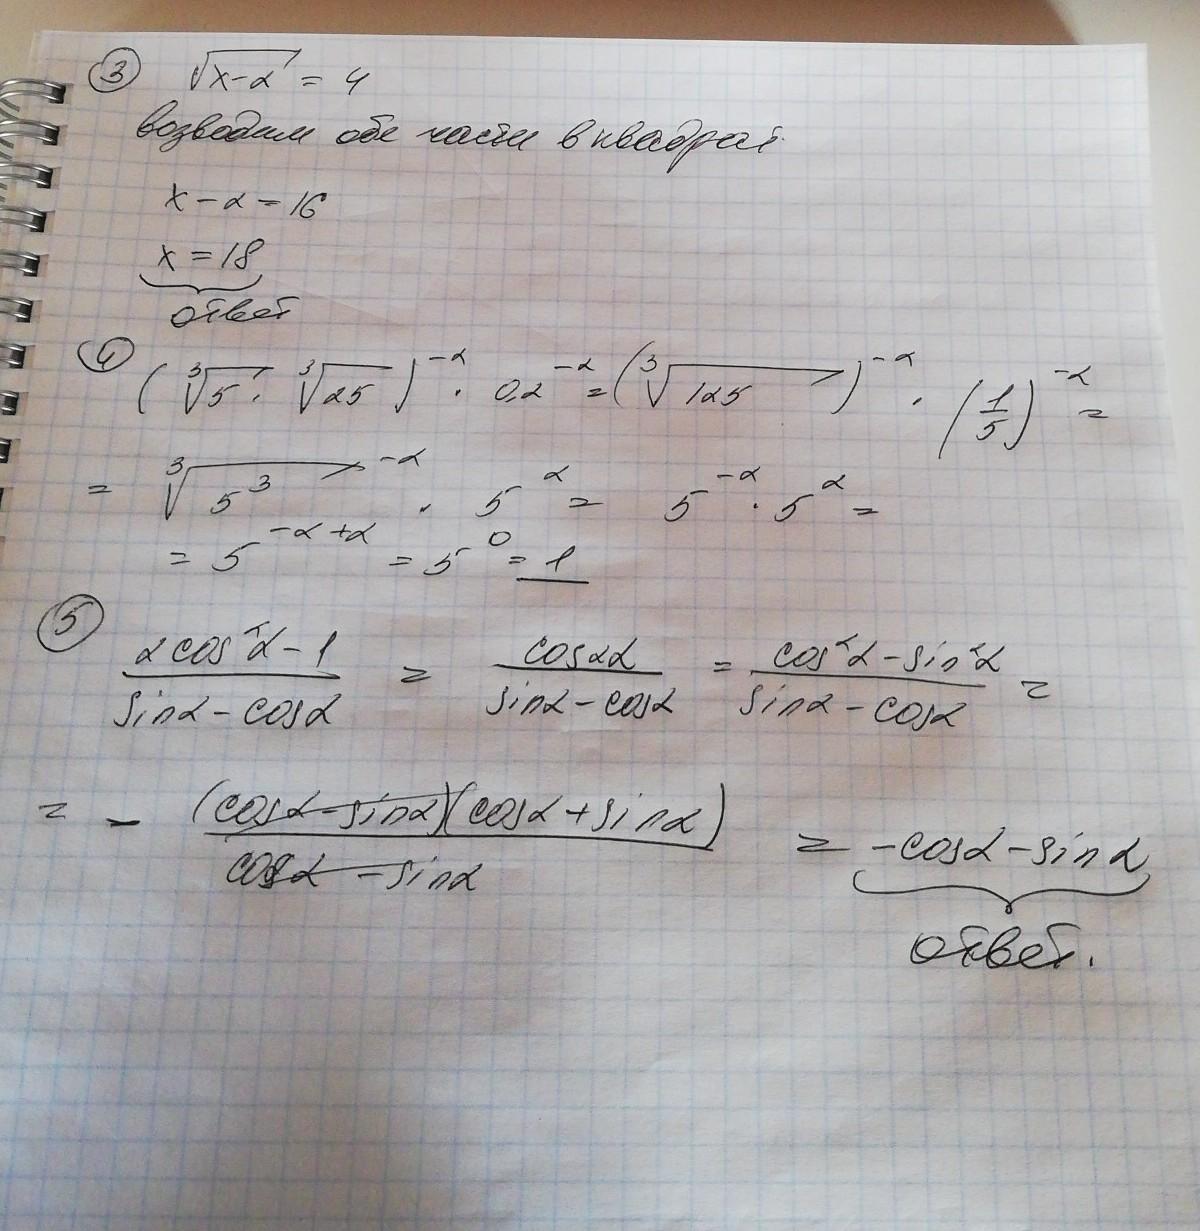 ③ √(x-2) = 4
возводим обе части в квадрат.
x - 2 = 16
x = 18
ответ
④ (∛5 · ∛25)^-2 · 0,2^-2 = (∛125)^-2 · (1/5)^-2 =
= ∛(5^3)^-2 · 5^2 = 5^-2 · 5^2 =
= 5^(-2+2) = 5^0 = 1
⑤ (2cos²α - 1)/(sinα - cosα) = cos2α/(sinα - cosα) = (cos²α - sin²α)/(sinα - cosα) =
= - (cosα - sinα)(cosα + sinα)/(cosα - sinα) = -cosα - sinα
ответ.